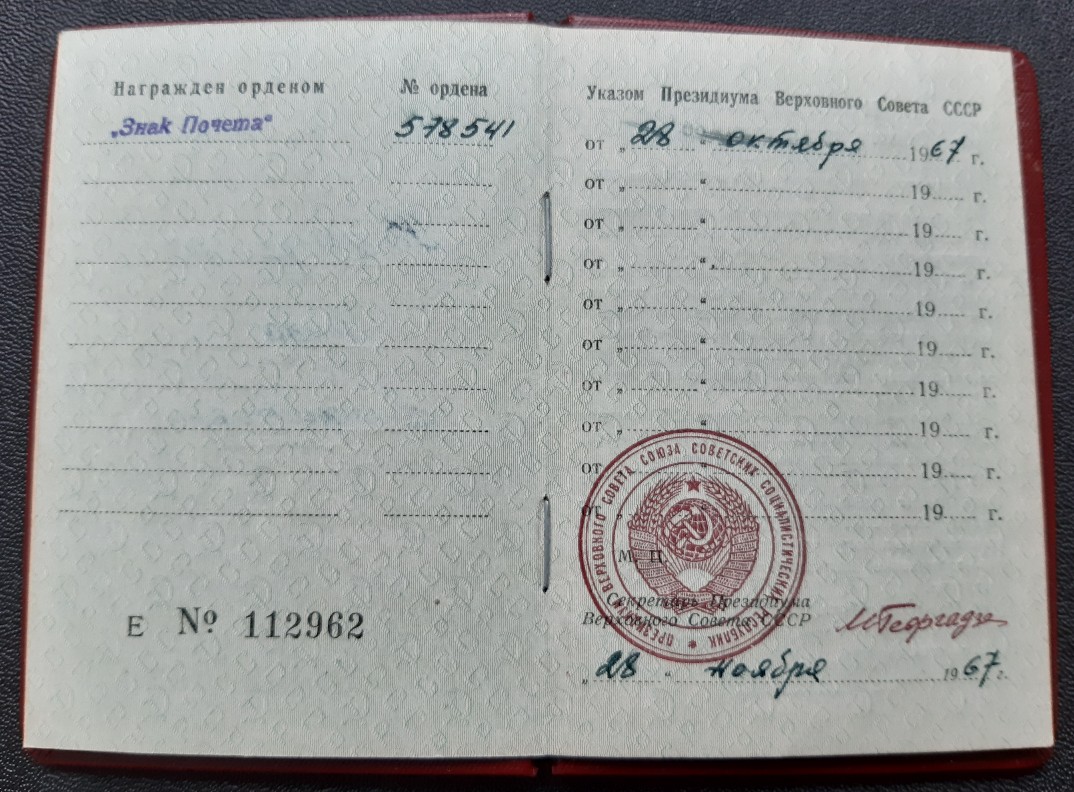 Награжден орденом № ордена
„Знак Почета“ 578541
Е № 112962
Указом Президиума Верховного Совета СССР
от „ 28 “ октября 1967 г.
от „ “ 19 г.
от „ “ 19 г.
от „ “ 19 г.
от „ “ 19 г.
от „ “ 19 г.
от „ “ 19 г.
от „ “ 19 г.
от „ “ 19 г.
от „ “ 19 г.
ПРЕЗИДИУМ ВЕРХОВНОГО СОВЕТА СОЮЗА СОВЕТСКИХ СОЦИАЛИСТИЧЕСКИХ РЕСПУБЛИК
М. П.
Секретарь Президиума
Верховного Совета СССР М Георгадзе
„ 28 “ ноября 1967 г.